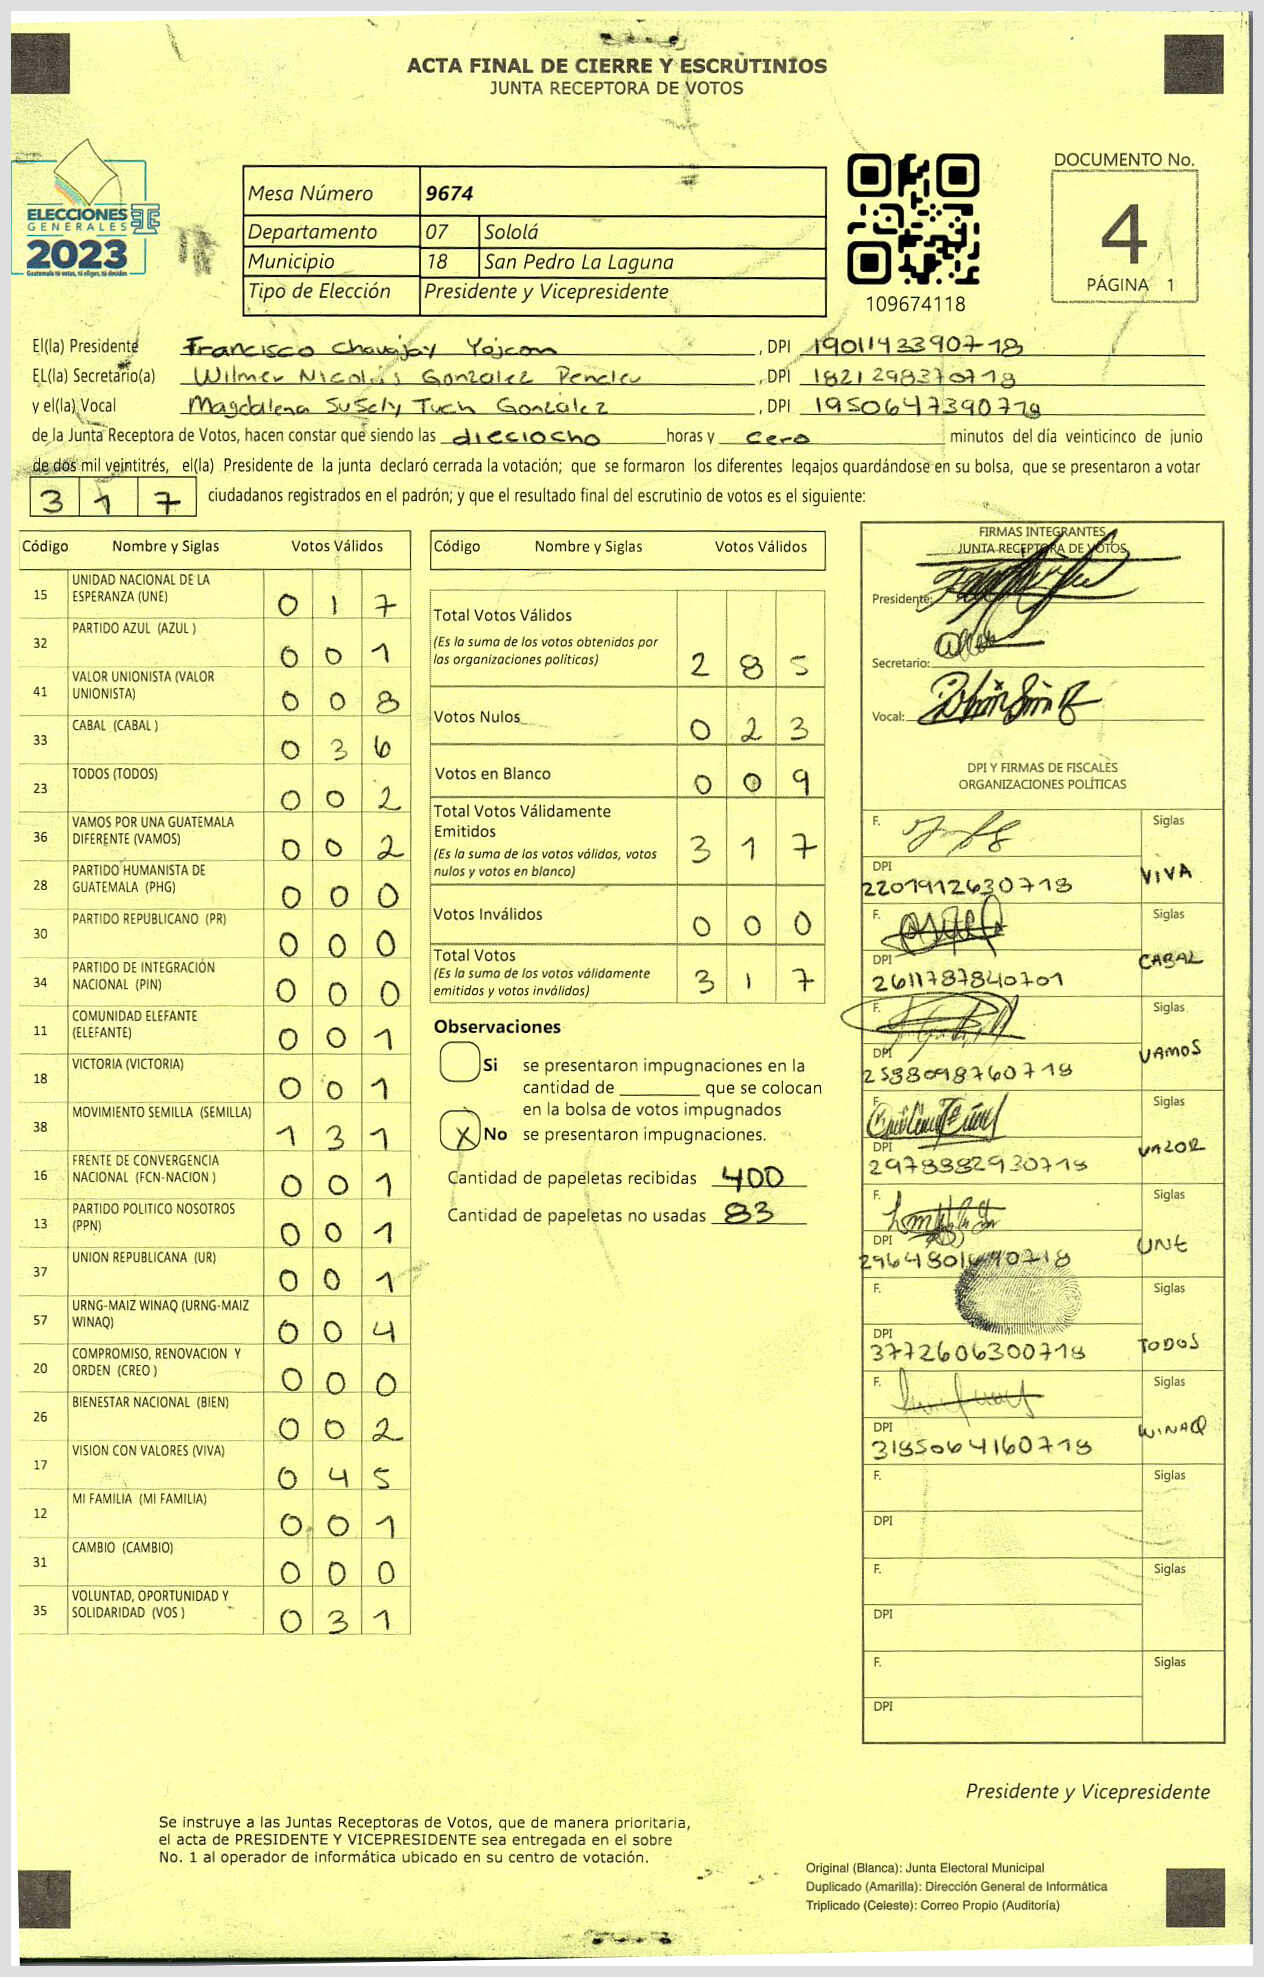 ACTA FINAL DE CIERRE Y ESCRUTINIOS
JUNTA RECEPTORA DE VOTOS
ELECCIONES
GENERALES
2023
Guatemala tú votas, tú eliges, tú decides
Mesa Número 9674
Departamento 07 Sololá
Municipio 18 San Pedro La Laguna
Tipo de Elección Presidente y Vicepresidente
109674118
DOCUMENTO No.
4
PÁGINA 1
El(la) Presidente Francisco Chavajay Yojcom, DPI 1901143390718
EL(la) Secretario(a) Wilmer Nicolás Gonzalez, DPI 1821298370718
y el(la) Vocal Magdalena Susely Tuch González, DPI 1950647390718
de la Junta Receptora de Votos, hacen constar que siendo las dieciocho horas y cero minutos del día veinticinco de junio
de dos mil veintitrés, el(la) Presidente de la junta declaró cerrada la votación; que se formaron los diferentes legajos guardándose en su bolsa, que se presentaron a votar
317 ciudadanos registrados en el padrón; y que el resultado final del escrutinio de votos es el siguiente:
Código Nombre y Siglas Votos Válidos
15 UNIDAD NACIONAL DE LA ESPERANZA (UNE) 017
32 PARTIDO AZUL (AZUL ) 001
41 VALOR UNIONISTA (VALOR UNIONISTA) 008
33 CABAL (CABAL ) 036
23 TODOS (TODOS) 002
36 VAMOS POR UNA GUATEMALA DIFERENTE (VAMOS) 002
28 PARTIDO HUMANISTA DE GUATEMALA (PHG) 000
30 PARTIDO REPUBLICANO (PR) 000
34 PARTIDO DE INTEGRACIÓN NACIONAL (PIN) 000
11 COMUNIDAD ELEFANTE (ELEFANTE) 001
18 VICTORIA (VICTORIA) 001
38 MOVIMIENTO SEMILLA (SEMILLA) 131
16 FRENTE DE CONVERGENCIA NACIONAL (FCN-NACION ) 001
13 PARTIDO POLITICO NOSOTROS (PPN) 001
37 UNION REPUBLICANA (UR) 001
57 URNG-MAIZ WINAQ (URNG-MAIZ WINAQ) 004
20 COMPROMISO, RENOVACION Y ORDEN (CREO ) 000
26 BIENESTAR NACIONAL (BIEN) 002
17 VISION CON VALORES (VIVA) 045
12 MI FAMILIA (MI FAMILIA) 001
31 CAMBIO (CAMBIO) 000
35 VOLUNTAD, OPORTUNIDAD Y SOLIDARIDAD (VOS ) 031
Código Nombre y Siglas Votos Válidos
Total Votos Válidos 285
(Es la suma de los votos obtenidos por
las organizaciones políticas)
Votos Nulos 023
Votos en Blanco 009
Total Votos Válidamente
Emitidos 317
(Es la suma de los votos válidos, votos
nulos y votos en blanco)
Votos Inválidos 000
Total Votos 317
(Es la suma de los votos válidamente
emitidos y votos inválidos)
Observaciones
Si se presentaron impugnaciones en la
cantidad de ________ que se colocan
en la bolsa de votos impugnados
X No se presentaron impugnaciones.
Cantidad de papeletas recibidas 400
Cantidad de papeletas no usadas 83
FIRMAS INTEGRANTES
JUNTA RECEPTORA DE VOTOS
Presidente:
Secretario:
Vocal:
DPI Y FIRMAS DE FISCALES
ORGANIZACIONES POLÍTICAS
F. Siglas
DPI 2201912630718 VIVA
F. Siglas
DPI 2611787840701 CABAL
F. Siglas
DPI 2588098760718 VAMOS
F. Siglas
DPI 2978882930718 VALOR
F. Siglas
DPI UNE
F. Siglas
DPI 3772606300718 TODOS
F. Siglas
DPI 3185064160718 WINAQ
F. Siglas
DPI
F. Siglas
DPI
F. Siglas
DPI
Presidente y Vicepresidente
Se instruye a las Juntas Receptoras de Votos, que de manera prioritaria,
el acta de PRESIDENTE Y VICEPRESIDENTE sea entregada en el sobre
No. 1 al operador de informática ubicado en su centro de votación.
Original (Blanca): Junta Electoral Municipal
Duplicado (Amarilla): Dirección General de Informática
Triplicado (Celeste): Correo Propio (Auditoría)